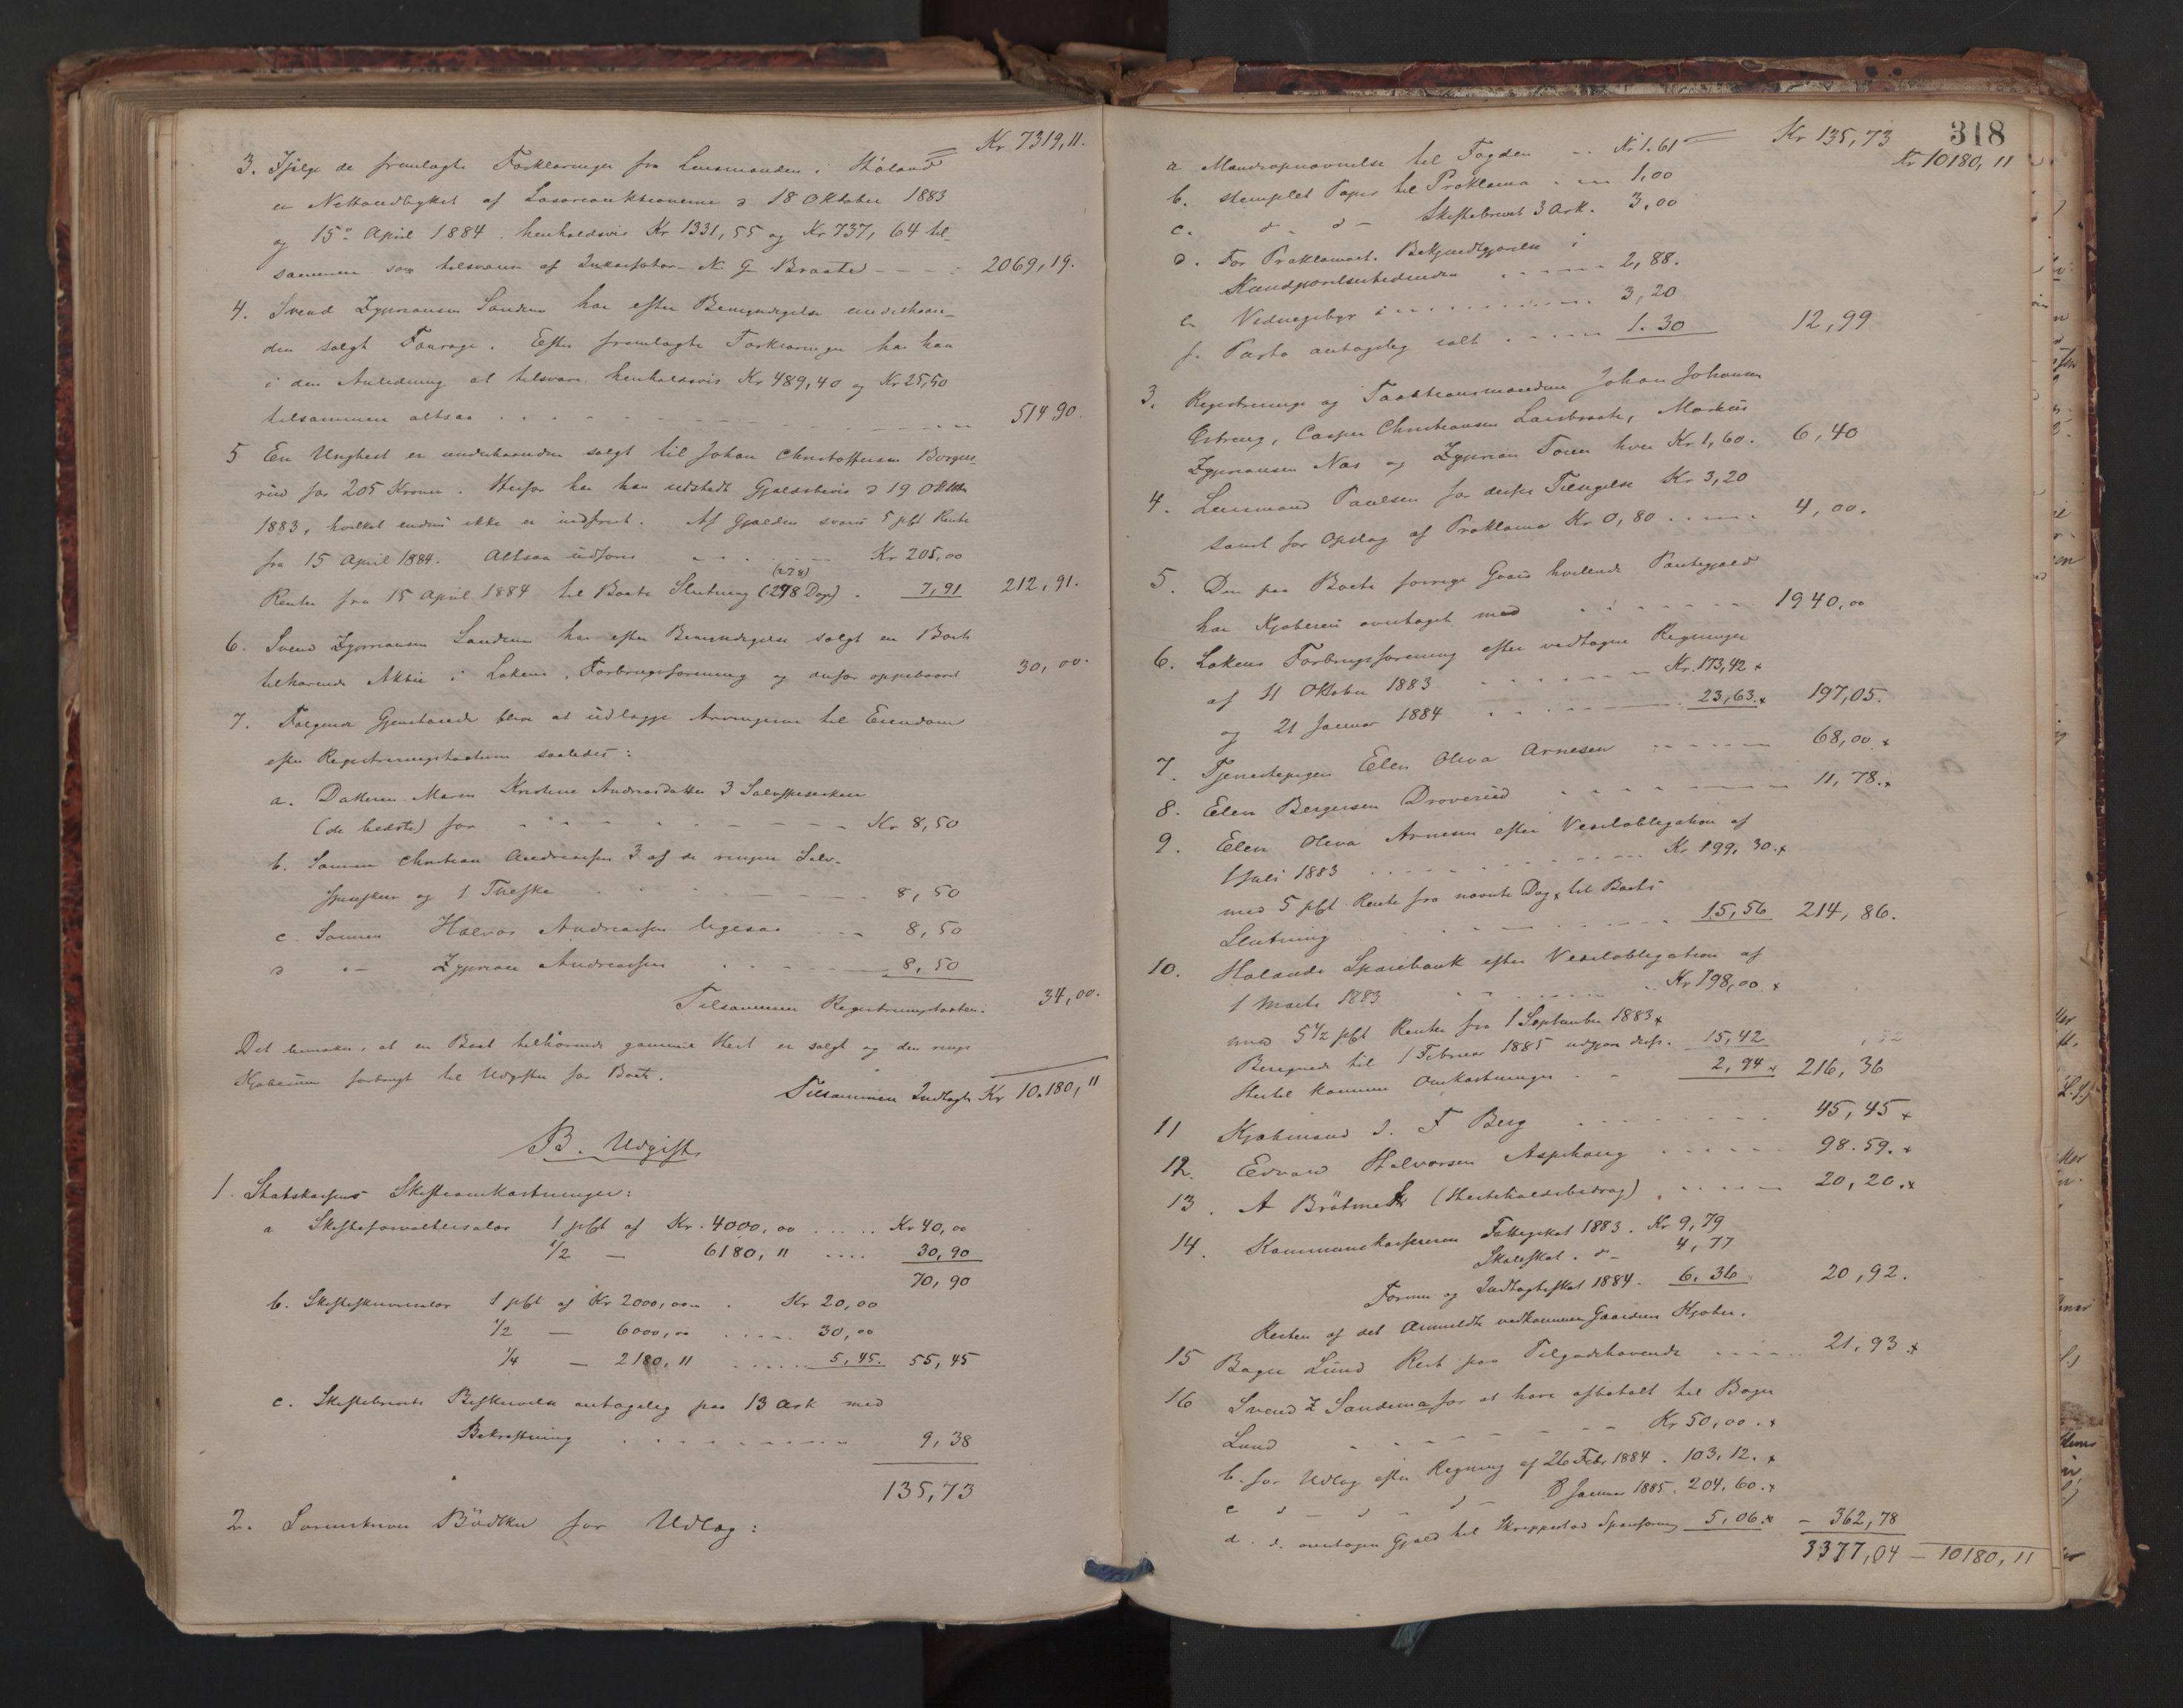 Kr 7319,11.
3. Ifølge de fremlagte Forklaringer fra Lensmanden i Høland
er Nettoudbyttet af Løsøreauktionerne d 18 Oktober 1883
og 15de April 1884 henholdsvis Kr 1331,55 og Kr 737,64 til-
sammen som tilsvares af Inkassator N. G. Braate - - - 2069,19.
4. Svend Zypriansen Sandem har efter Bemyndigelse underhaan-
den solgt Fourage. Efter fremlagte Forklaringer har han
i den Anledning at tilsvare henholdsvis Kr 489,40 og Kr 25,50
tilsammen altsaa - - - 514 90.
5 En Unghest er underhaanden solgt til Johan Christoffersen Borgers-
rud for 205 Kroner. Herfor har han udstedt Gjeldsbevis d 19 Oktbr
1883, hvilket endnu ikke er indfriet. Af Gjælden svares 5 pCt Rente
fra 15 April 1884. Altsaa udføres - - - Kr 205,00
(278)
Renter fra 15 April 1884 til Boets Slutning (298 Dage) . 7,91 212,91.
6. Svend Zypriansen Sandem har efter Bemyndigelse solgt en Boet
tilhørende Aktie i Løkens Forbrugsforening og derfor oppebaaret 30,00.
7. Følgende Gjenstande blive at udlægge Arvingerne til Eiendom
efter Registreringstaxten saaledes:
a. Datteren Maren Kristine Andreasdatter 3 Sølvspiseskeer
(de bedste) for - - - Kr 8,50
b. Sønnen Christian Andreassen 3 af de ringere Sølv-
spiseskeer og 1 Theske - - - 8,50
c. Sønnen Halvor Andreassen ligesaa - - - 8,50
d - Zyprian Andreassen - - - 8,50
Tilsammen Registreringstaxten. 34,00.
Det bemærkes, at en Boet tilhørende gammel Hest er solgt og den ringe
Kjøbesum forbrugt til Udgifter for Boet.
Tilsammen Indtægt Kr 10.180,11
B. Udgift
1. Statskassens Skifteomkostninger:
a Skifteforvaltersalær 1 pCt af Kr. 4000,00 ..... Kr 40,00
1/2 — 6180,11 .... 30,90
70,90
b. Skifteskriversalær 1 pCt af Kr 2000,00 . Kr 20,00
1/2 — 6000,00 ..... 30,00
1/4 — 2180,11 ...... 5,45. 55,45
c. Skiftebrevets Beskrivelse antagelig paa 13 Ark med
Bekræftning . . . . . . 9,38
135,73
2. Sorenskriver Bödtker for Udlæg:
318
Kr 135,73
Kr 10180,11
a Mandsopnævnelse til Fogden - - Kr 1.61
b. stemplet Papir til Proklama . - - 1,00
c. d - d - Skiftebrevet 3 Ark. 3,00
d. For Proklamaets Bekjendtgjørelse i
Kundgjørelsestidenden . . . . . 2,88.
e. Vidnegebyr i . . . . . . 3,20
f. Porto antagelig ialt . . . . 1.30 12,99
3. Registrerings og Taxtionsmændene Johan Johansen
Østreng, Casper Christiansen Lovbraate, Markus
Zypriansen Næs og Zyprian Toien hver Kr. 1,60. 6,40
4. Lensmand Paulsen for desses Tilsigelse Kr 3,20
samt for Opslag af Proklama Kr 0,80 ...... 4,00.
5. Den paa Boets forrige Gaard hvilende Pantegjæld
har Kjøberen overtaget med . . . . . . 1940,00
6. Løkens Forbrugsforening efter vedtagne Regninger
af 11 Oktober 1883 . . . . . Kr. 173,42 x
og 21 Januar 1884 . . . . 23,63.x 197,05.
7. Tjenestepigen Elen Oliva Arnesen . . . . . 68,00 x
8. Elen Bergersen Droverud . . . . . 11,78.x
9. Elen Oliva Arnesen efter Vexelobligation af
1 Juli 1883 . . . . . . Kr 199,30.x
med 5 pCt Rente fra nævnte Dag x til Boets
Slutning . . . . . 15,56 214,86.
10. Hølands Sparebank efter Vexelobligation af
1 Marts 1883 . . . . . Kr 198,00 x
med 5 1/2 pCt Renter fra 1 September 1883 x
Beregnede til 1 Februar 1885 udgjør disse. 15,42
Hertil kommer Omkostninger - - 2,94 x 216,36
11 Kjøbmand J. F Berg . . . . . . 45,45 x
12. Edvard Halvorsen Asphaug . . . . . 98.59.x
13. A Bråtmest (Hesteholdsbidrag) . . . . 20,20.x
14. Kommunekassereren Fattigskat 1883. Kr 9,79
Skoleskat. d- 4,77
Formue og Indtægtsskat 1884. 6,36 20,92.
Resten af det Anmeldte vedkommer Gaardens Kjøber.
15 Bager Lund Rest paa Tilgodehavende . . . . . 21,93 x
16 Svend Z Sandem a for at have afbetalt til Bager
Lund - - - - - Kr 50,00.x
b. for Udlæg efter Regning af 26 Febr 1884. 103,12.x
c d - d - d - 8 Januar 1885. 204,60.x
d. d. overtagen Gjæld til Skreppestad Spareforening 5,06.x - 362,78
3377,04 - 10180,11